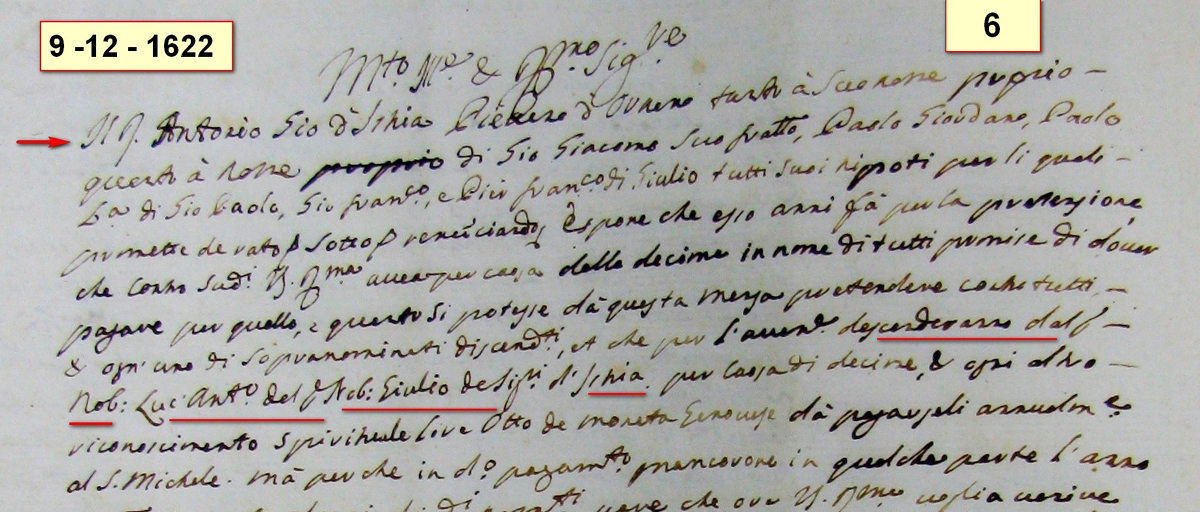 9 -12 - 1622
6
M.to Ill.e & R.mo Sig.re
Il R. Antonio Gio d'Ischia Pievano d' tanto à suo nome proprio
quanto à nome proprio di Gio Giacomo suo fratto, Paolo Giordano, Paolo
di Gio Paolo, Gio franc.o, e Pier fran.co di Giulio tutti suoi nippoti per li quali
promette de rato sotto espone che esso anni fà per la pretensione
che contro Sud.i avea per caosa delle decime in nome di tutti promise di dover
pagare per quello, e quanto si potesse dà questa mensa pretendere contro tutti,
& ogn' uno di sopranominati discend.ti, et che per l'aven.e descenderanno dal
Nob: Luc' Ant.o del q Nob: Giulio de Sig.ri d' Ischia per caosa di decime, & ogni altro
riconoscimento spirituale Lire Otto de moneta Genovese dà pagarseli annualm.e
al S. Michele. mà perche in d.o pagam.to mancorono in qualche parte l' anno
che ora voglia venire